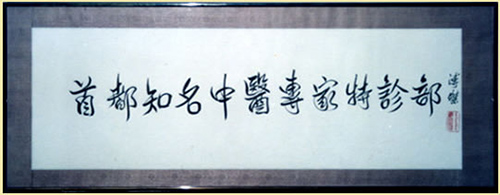 首都知名中醫專家特診部
溥傑